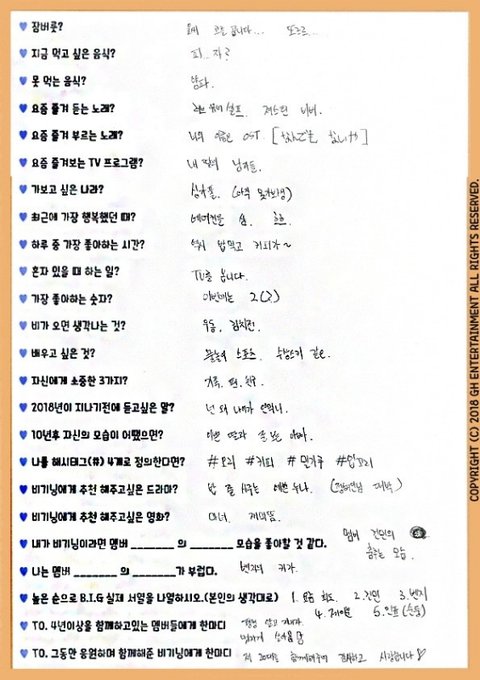 ♥ 잠버릇?
♥ 지금 먹고 싶은 음식? 피..자?
♥ 못 먹는 음식?
♥ 요즘 즐겨 듣는 노래? 저스틴 비버.
♥ 요즘 즐겨 부르는 노래? 너의 이름은 OST [なんでもないや]
♥ 요즘 즐겨보는 TV 프로그램? 내 딸의 남자들.
♥ 가보고 싶은 나라? (아직 못가봤음)
♥ 최근에 가장 행복했던 때?
♥ 하루 중 가장 좋아하는 시간? 역시 밥먹고 커피지~
♥ 혼자 있을 때 하는 일? TV를 봅니다.
♥ 가장 좋아하는 숫자? 이번에는 2(?)
♥ 비가 오면 생각나는 것? 우동, 김치전.
♥ 배우고 싶은 것? 스포츠. 수상스키 같은.
♥ 자신에게 소중한 3가지? 가족. 팬. 친구.
♥ 2018년이 지나기전에 듣고싶은 말? 넌 왜 나이가 안먹니.
♥ 10년후 자신의 모습이 어땠으면? 이쁜 딸과 잘 노는 아빠.
♥ 나를 해시태그(#) 4개로 정의한다면? #요리 #커피 #민거주 #입꼬리
♥ 비기닝에게 추천 해주고싶은 드라마? 밥 잘 사주는 예쁜 누나.
♥ 비기닝에게 추천 해주고싶은 영화? 마녀.
♥ 내가 비기닝이라면 멤버 ______ 의 ______ 모습을 좋아할 것 같다. 멤버 건민의 춤추는 모습.
♥ 나는 멤버 ______ 의 ______가 부럽다. 벤지의 키가.
♥ 높은 순으로 B.I.G 실제 서열을 나열하시오.(본인의 생각대로) 1. 희도. 2. 건민 3. 벤지
4. 제이훈 5. 민표
♥ TO. 4년이상을 함께하고있는 멤버들에게 한마디
♥ TO. 그동안 응원하며 함께해준 비기닝에게 한마디 저 20대를 함께해주어 감사하고 사랑합니다♡
COPYRIGHT (C) 2018 GH ENTERTAINMENT ALL RIGHTS RESERVED.